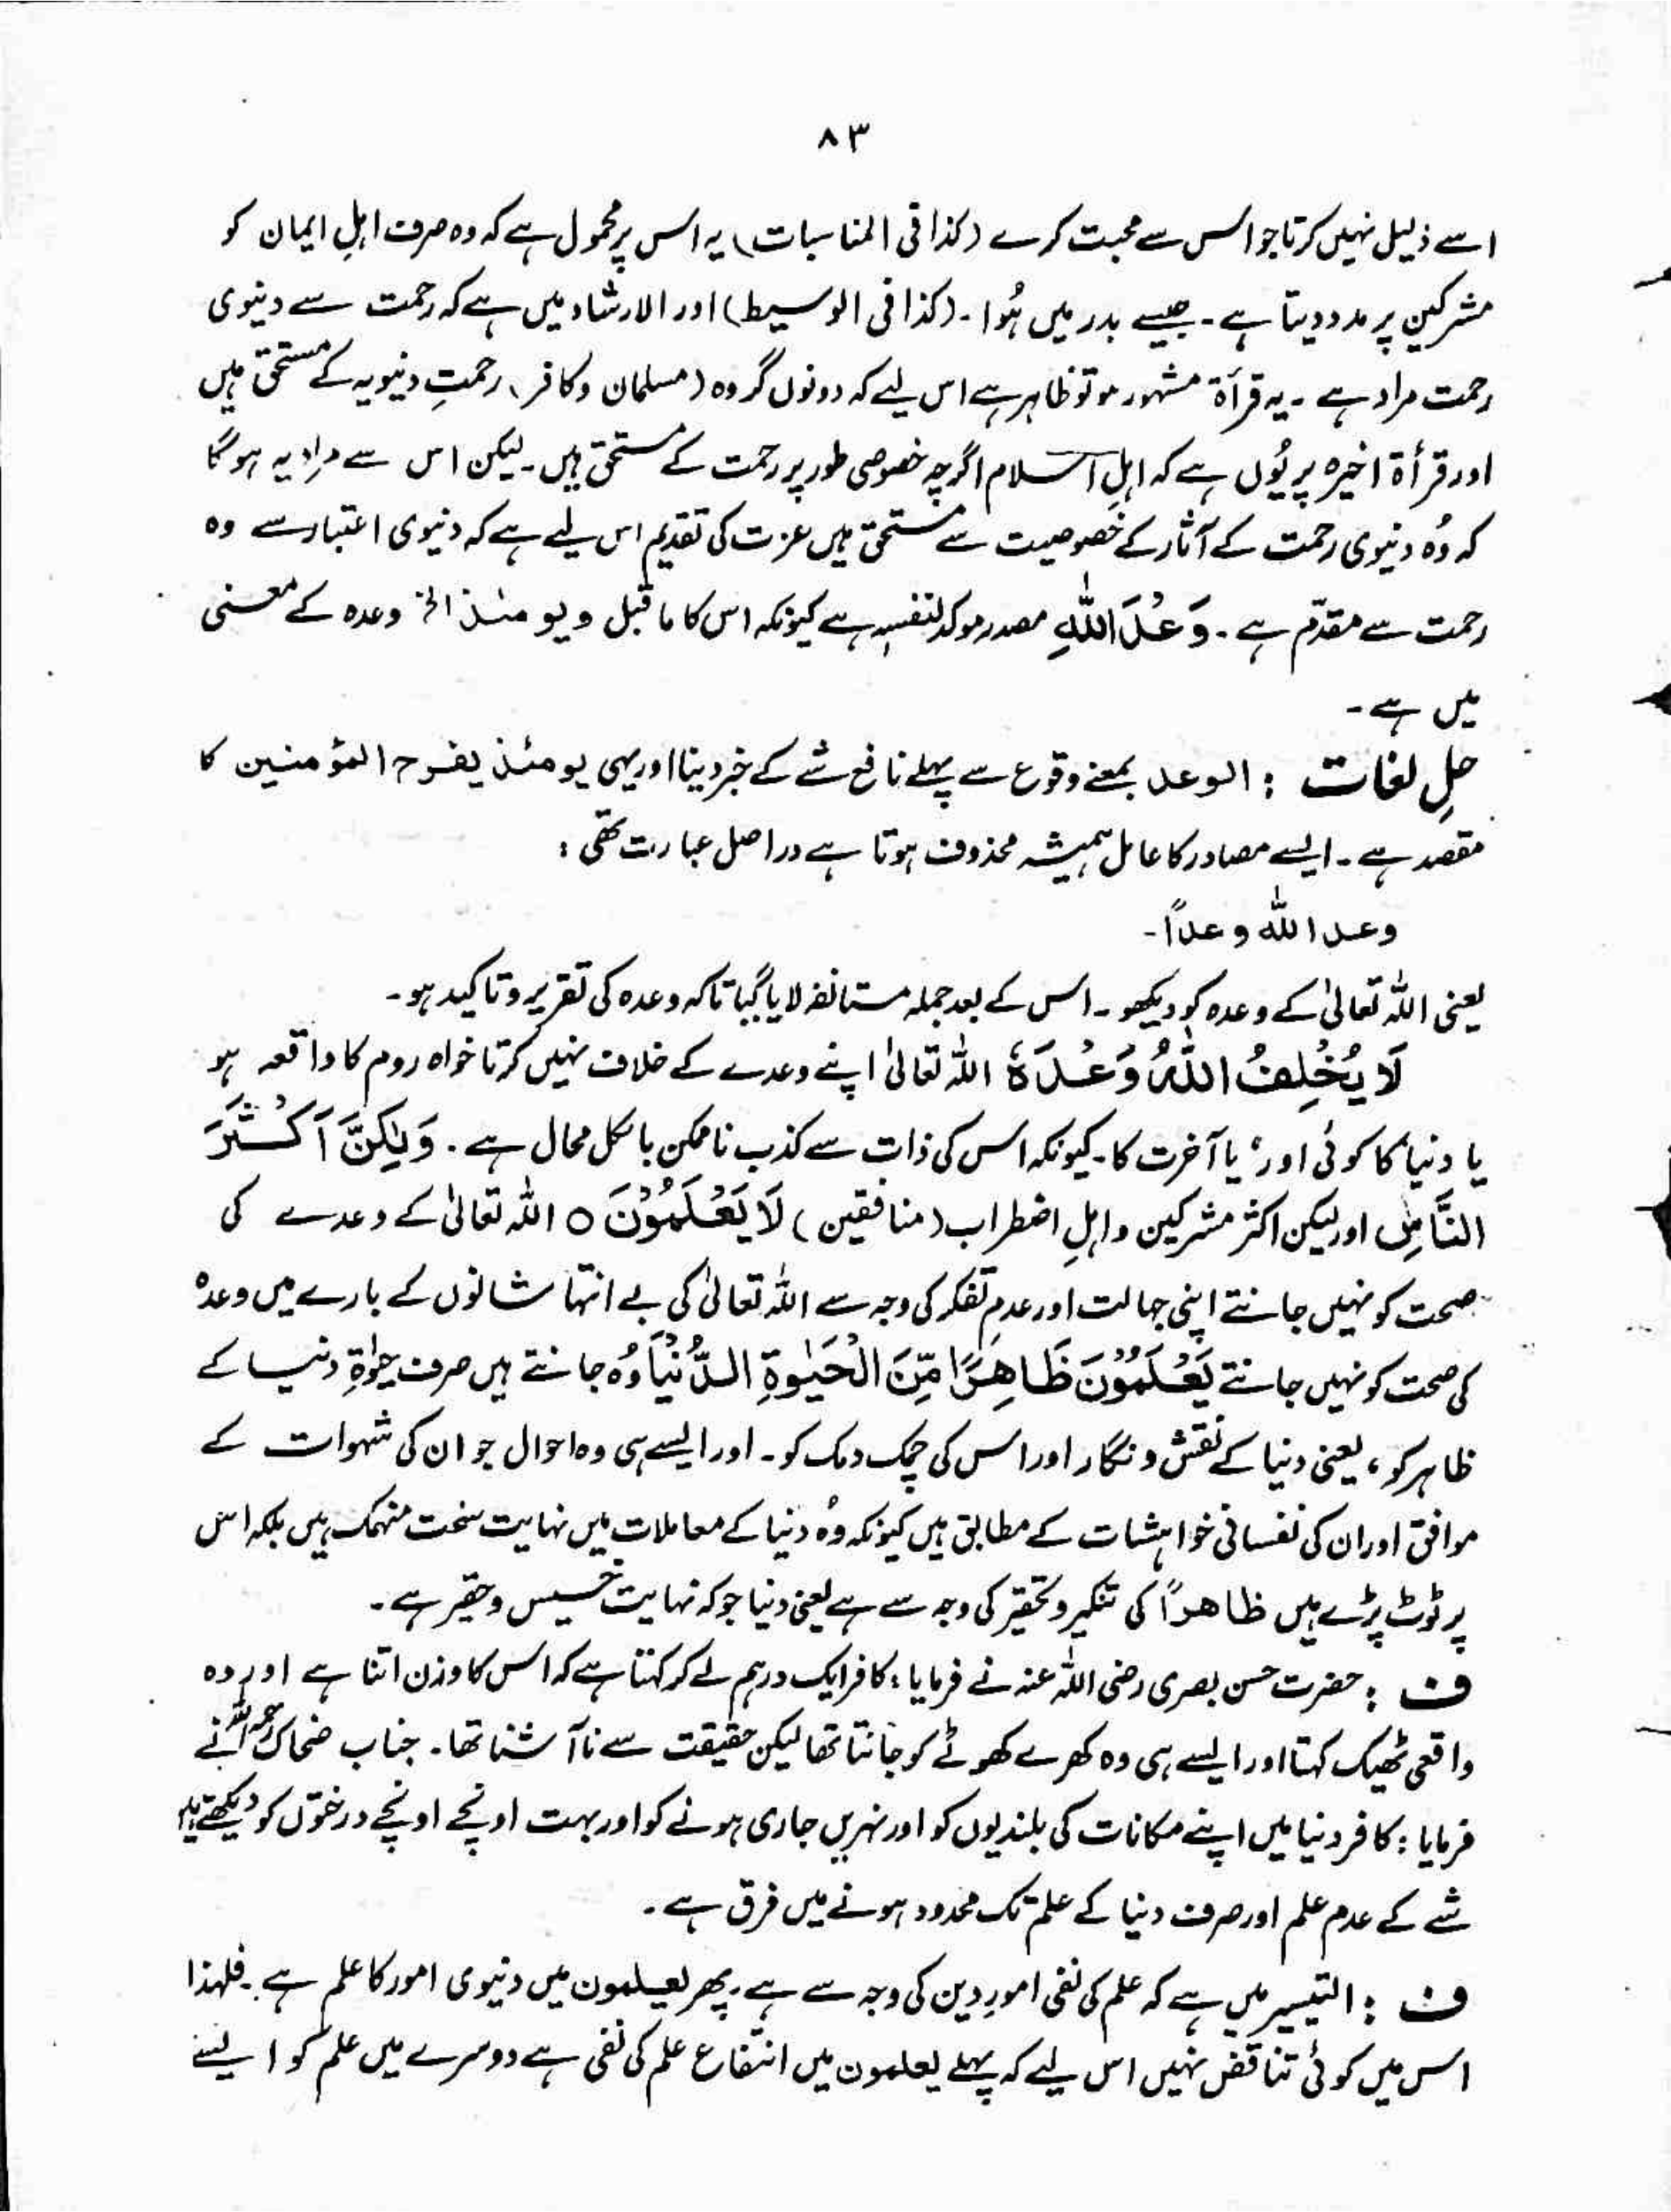 ۸۳
اسے ذلیل نہیں کرتا جو اس سے محبت کرے (کذا فی المناسبات) یہ اس پر محمول ہے کہ وہ صرف اہلِ ایمان کو
مشرکین پر مدد دیتا ہے۔ جیسے بدر میں ہُوا۔ (کذا فی الوسیط) اور الارشاد میں ہے کہ رحمت سے دنیوی
رحمت مراد ہے۔ یہ قرأۃ مشہور ہو تو ظاہر ہے اس لیے کہ دونوں گروہ (مسلمان و کافر) رحمتِ دنیویہ کے مستحق ہیں
اور قرأۃ اخیرہ پر یُوں ہے کہ اہلِ اسلام اگرچہ خصوصی طور پر رحمت کے مستحق ہیں۔ لیکن اس سے مراد یہ ہوگا
کہ وُہ دنیوی رحمت کے آثار کے خصوصیت سے مستحق ہیں عزت کی تقدیم اس لیے ہے کہ دنیوی اعتبار سے وہ
رحمت سے مقدّم ہے۔ وَعْدَ اللّٰهِ مصدر موکد لنفسہٖ ہے کیونکہ اس کا ما قبل ویومئذ الخ وعدہ کے معنی
میں ہے۔
حلِ لغات : الوعد بمعنے وقوع سے پہلے نافع شے کے خبر دینا اور یہی یومئذ یفرح المؤمنین کا
مقصد ہے۔ ایسے مصادر کا عامل ہمیشہ محذوف ہوتا ہے دراصل عبارت تھی :
وعد اللّٰہ وعدًا۔
یعنی اللہ تعالیٰ کے وعدہ کو دیکھو۔ اس کے بعد جملہ مستانفہ لایا گیا تاکہ وعدہ کی تقریر و تاکید ہو۔
لَا يُخْلِفُ اللّٰهُ وَعْدَهٗ اللہ تعالیٰ اپنے وعدے کے خلاف نہیں کرتا خواہ روم کا واقعہ ہو
یا دنیا کا کوئی اور، یا آخرت کا۔ کیونکہ اس کی ذات سے کذب ناممکن بالکل محال ہے۔ وَلٰكِنَّ اَكْثَرَ
النَّاسِ اور لیکن اکثر مشرکین و اہلِ اضطراب (منافقین) لَا يَعْلَمُوْنَ ○ اللہ تعالیٰ کے وعدے کی
صحت کو نہیں جانتے اپنی جہالت اور عدمِ تفکر کی وجہ سے اللہ تعالیٰ کی بے انتہا شانوں کے بارے میں وعدہ
کی صحت کو نہیں جانتے يَعْلَمُوْنَ ظَاهِرًا مِّنَ الْحَيٰوةِ الدُّنْيَا وُہ جانتے ہیں صرف حیٰوۃِ دنیا کے
ظاہر کو، یعنی دنیا کے نقش و نگار اور اس کی چمک دمک کو۔ اور ایسے ہی وہ احوال جو ان کی شہوات کے
موافق اور ان کی نفسانی خواہشات کے مطابق ہیں کیونکہ وُہ دنیا کے معاملات میں نہایت سخت منہمک ہیں بلکہ اس
پر ٹوٹ پڑے ہیں ظاهرًا کی تنکیر و تحقیر کی وجہ سے ہے یعنی دنیا جو کہ نہایت خسیس و حقیر ہے۔
ف : حضرت حسن بصری رضی اللہ عنہ نے فرمایا : کافر ایک درہم لے کر کہتا ہے کہ اس کا وزن اتنا ہے اور وہ
واقعی ٹھیک کہتا اور ایسے ہی وہ کھرے کھوٹے کو جانتا تھا لیکن حقیقت سے ناآشنا تھا۔ جناب ضحاک رحمہ اللہ نے
فرمایا : کافر دنیا میں اپنے مکانات کی بلندیوں کو اور نہریں جاری ہونے کو اور بہت اونچے اونچے درختوں کو دیکھتے ہیں
شے کے عدم علم اور صرف دنیا کے علم تک محدود ہونے میں فرق ہے۔
ف : التیسیر میں ہے کہ علم کی نفی امورِ دین کی وجہ سے ہے۔ پھر یعلمون میں دنیوی امور کا علم ہے۔ فلہذا
اس میں کوئی تناقض نہیں اس لیے کہ پہلے یعلمون میں انتفاع علم کی نفی ہے دوسرے میں علم کو ایسے